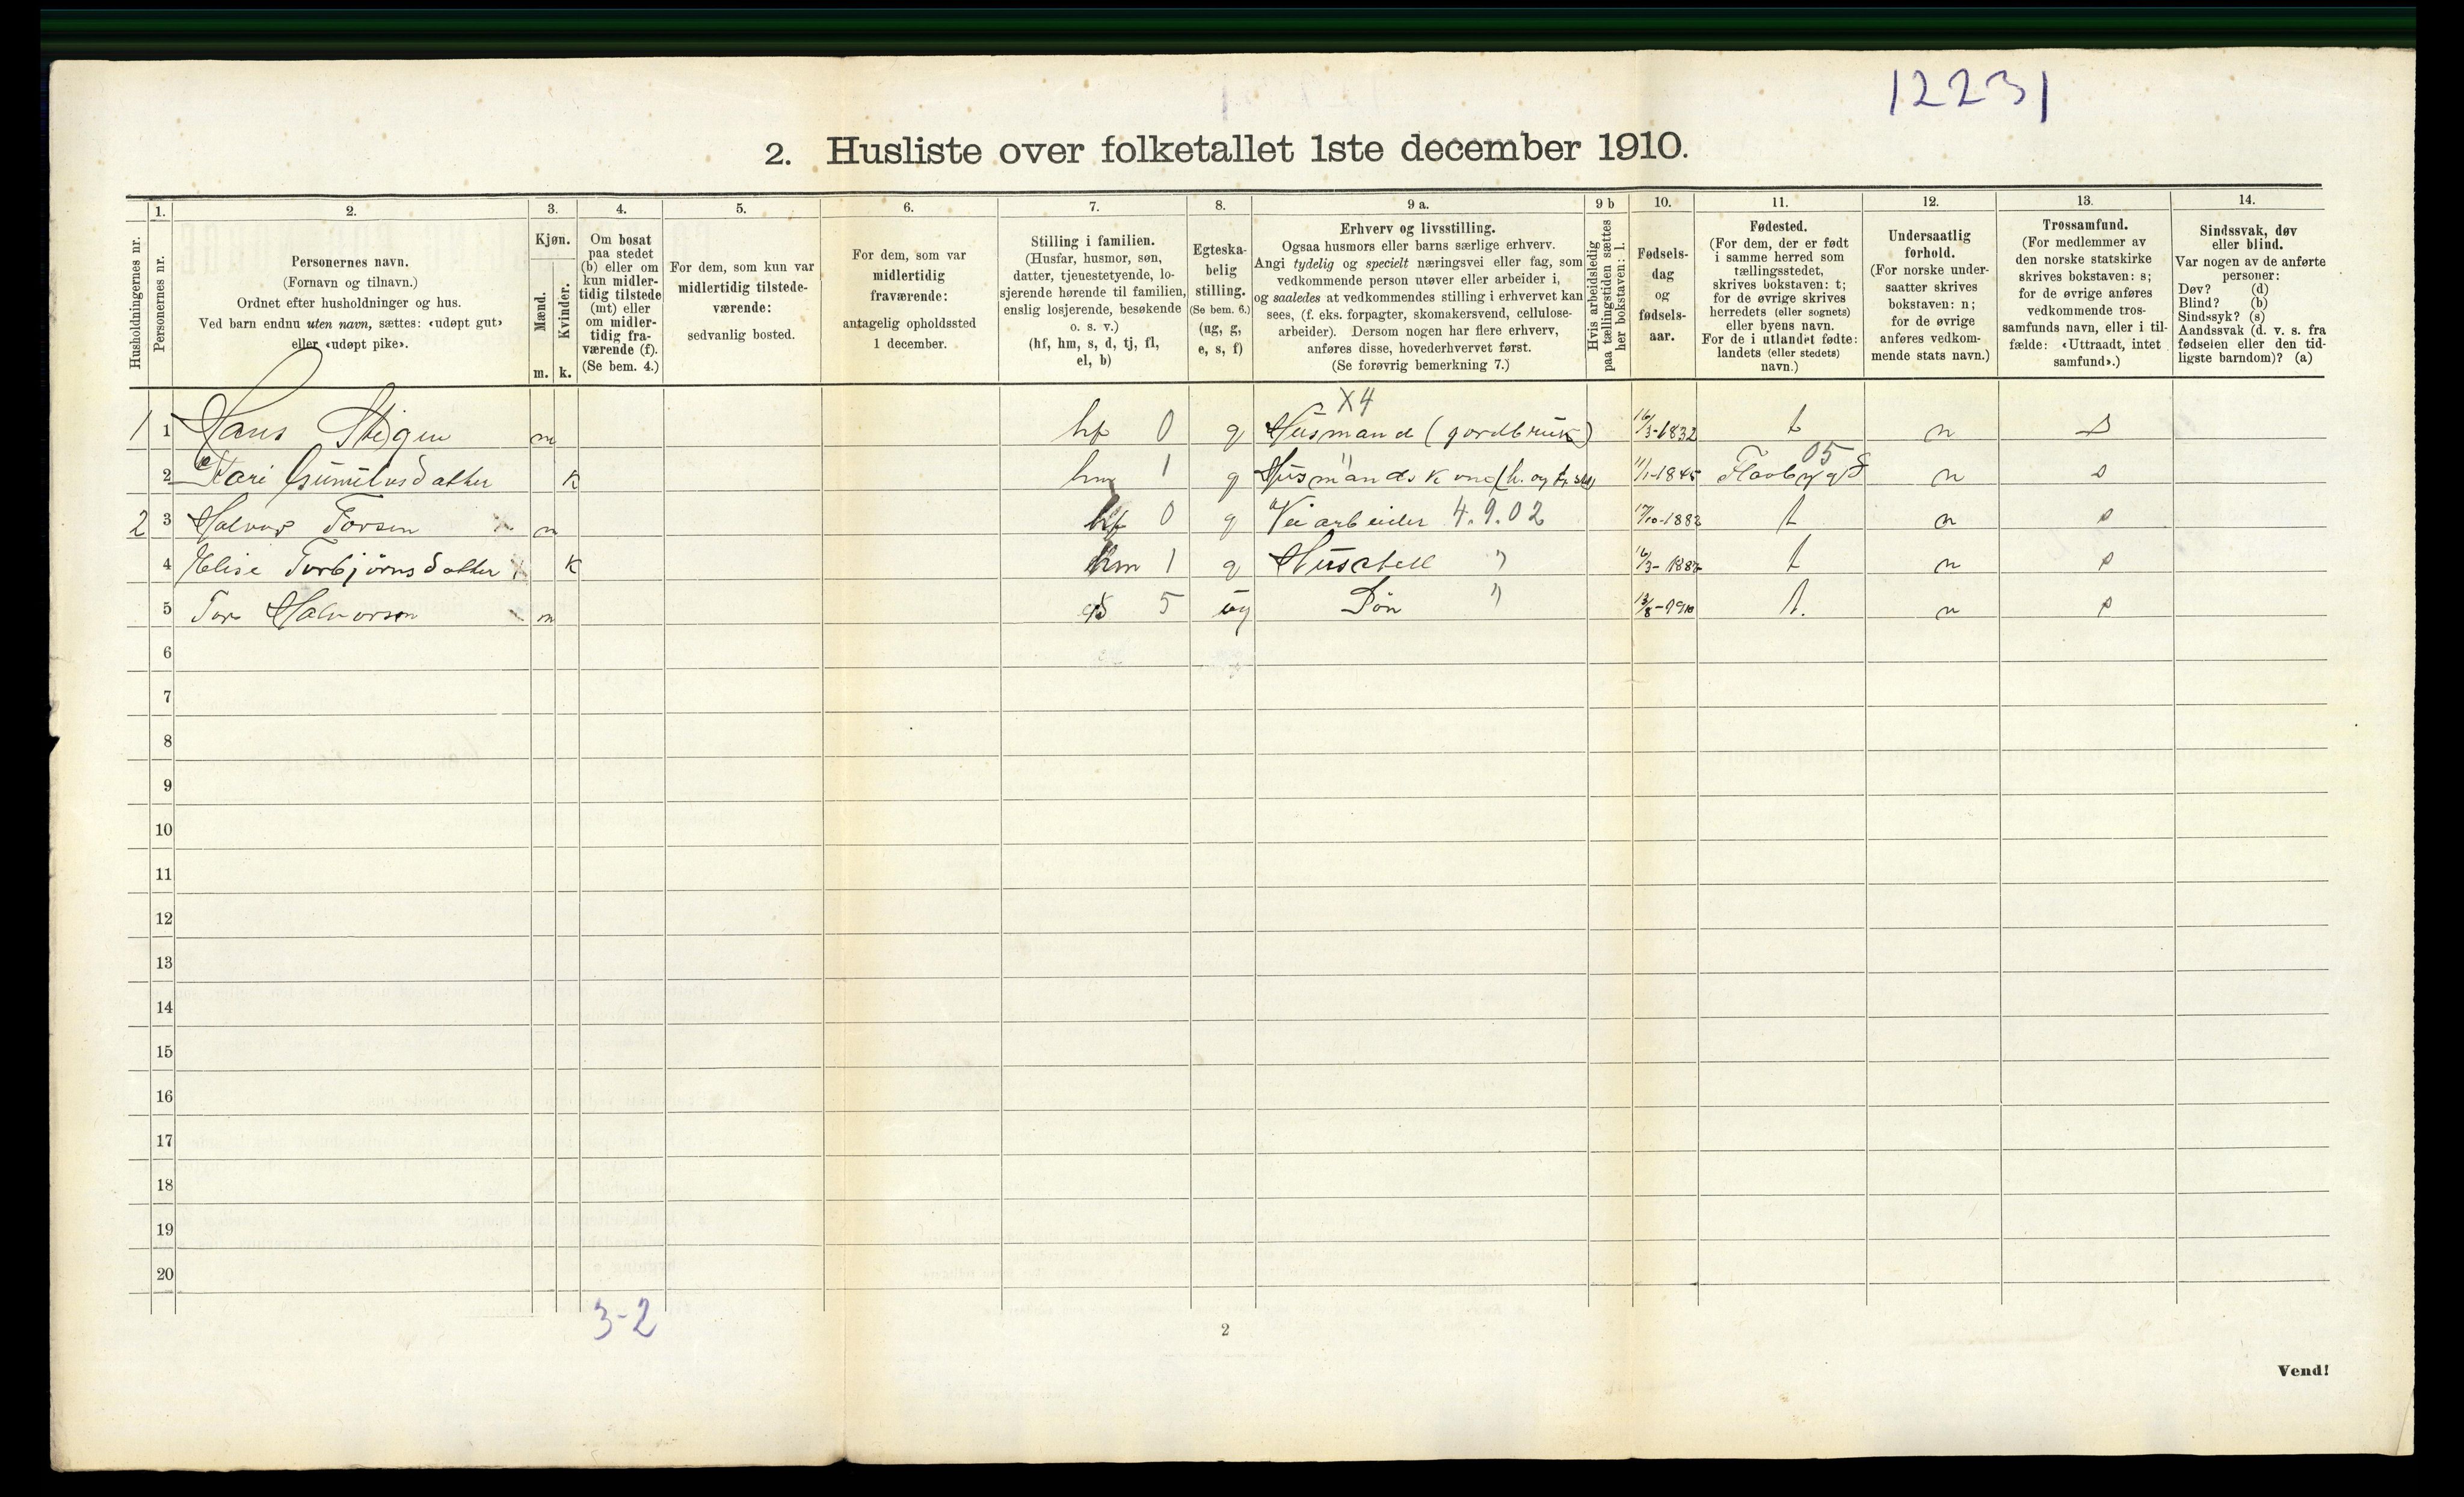 12231
2. Husliste over folketallet 1ste december 1910.
Husholdningernes nr.
1.
Personernes nr.
2.
Personernes navn.
(Fornavn og tilnavn.)
Ordnet efter husholdninger og hus.
Ved barn endnu uten navn, sættes: «udøpt gut»
eller «udøpt pike».
3.
Kjøn.
Mænd.
Kvinder.
m. k.
4.
Om bosat
paa stedet
(b) eller om
kun midler-
tidig tilstede
(mt) eller
om midler-
tidig fra-
værende (f).
(Se bem. 4.)
5.
For dem, som kun var
midlertidig tilstede-
værende:
sedvanlig bosted.
6.
For dem, som var
midlertidig
fraværende:
antagelig opholdssted
1 december.
7.
Stilling i familien.
(Husfar, husmor, søn,
datter, tjenestetyende, lo-
sjerende hørende til familien,
enslig losjerende, besøkende
o. s. v.)
(hf, hm, s, d, tj, fl,
el, b)
8.
Egteska-
belig
stilling.
(Se bem. 6.)
(ug, g,
e, s, f)
9 a.
Erhverv og livsstilling.
Ogsaa husmors eller barns særlige erhverv.
Angi tydelig og specielt næringsvei eller fag, som
vedkommende person utøver eller arbeider i,
og saaledes at vedkommendes stilling i erhvervet kan
sees, (f. eks. forpagter, skomakersvend, cellulose-
arbeider). Dersom nogen har flere erhverv,
anføres disse, hovederhvervet først.
(Se forøvrig bemerkning 7.)
9 b
Hvis arbeidsledig
paa tællingstiden sættes
her bokstaven: l.
10.
Fødsels-
dag
og
fødsels-
aar.
11.
Fødested.
(For dem, der er født
i samme herred som
tællingsstedet,
skrives bokstaven: t;
for de øvrige skrives
herredets (eller sognets)
eller byens navn.
For de i utlandet fødte:
landets (eller stedets)
navn.)
12.
Undersaatlig
forhold.
(For norske under-
saatter skrives
bokstaven: n;
for de øvrige
anføres vedkom-
mende stats navn.)
13.
Trossamfund.
(For medlemmer av
den norske statskirke
skrives bokstaven: s;
for de øvrige anføres
vedkommende tros-
samfunds navn, eller i til-
fælde: «Uttraadt, intet
samfund».)
14.
Sindssvak, døv
eller blind.
Var nogen av de anførte
personer:
Døv? (d)
Blind? (b)
Sindssyk? (s)
Aandssvak (d. v. s. fra
fødselen eller den tid-
ligste barndom)? (a)
X4
1 1 Hans Stigen m hf 0 g Husmand (gordbruk) 16/3-1832 t n s
05
2 Kari Gunulvsdatter k hm 1 g Husmandskone 11/1-1845 Flaabygd n s
2 3 Halvor Torsen m hf 0 g Veiarbeider 4.9.02 17/10-1882 t n s
4 Elise Torbjørnsdatter k hm 1 g Husstell " 16/3-1882 t n s
5 Tor Halvorsen m s 5 ug Søn " 13/8-1910 t. n s
6
7
8
9
10
11
12
13
14
15
16
17
18
19
20
3-2
2
Vend!